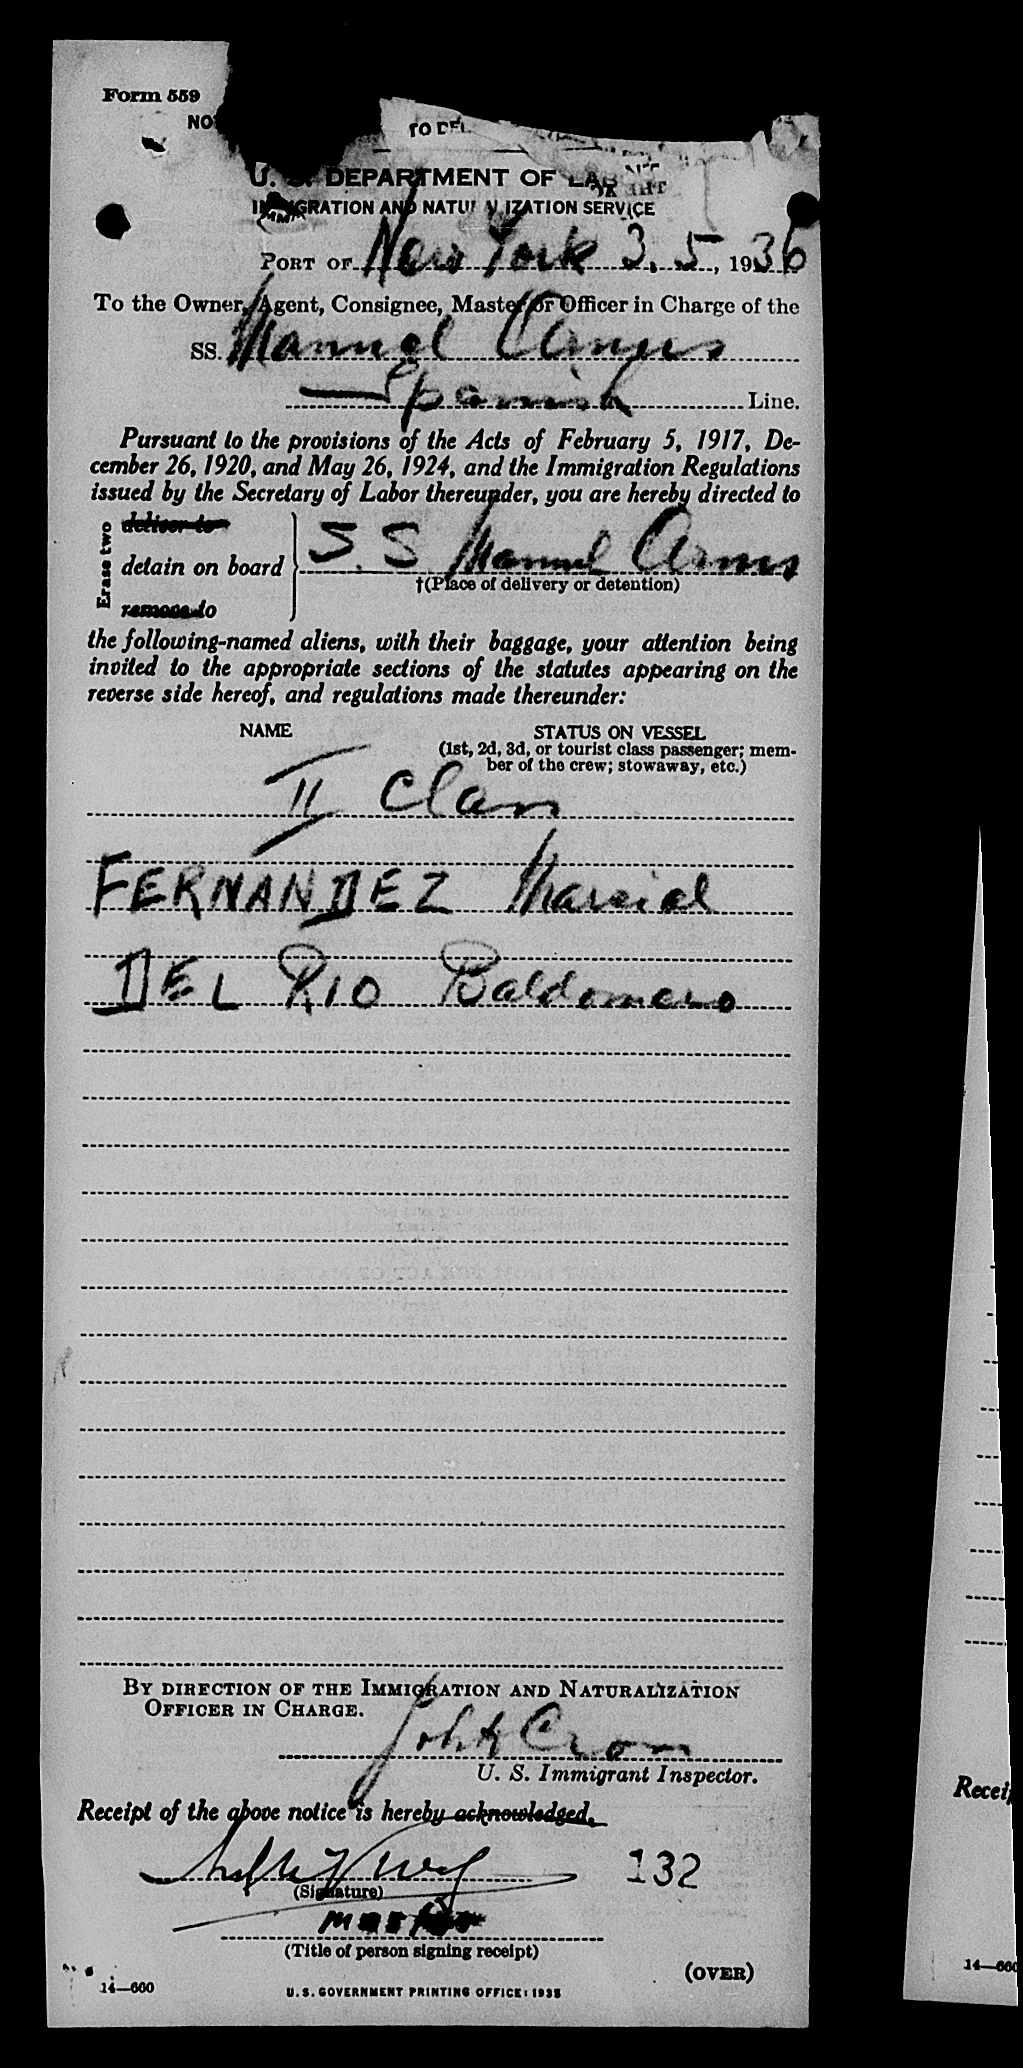 Form 559
NO
TO DEL
U. S. DEPARTMENT OF LAB
IMMIGRATION AND NATURALIZATION SERVICE
PORT OF New York 3. 5, 1936
To the Owner, Agent, Consignee, Master or Officer in Charge of the
SS. Manuel Arnus
Spanish Line.
Pursuant to the provisions of the Acts of February 5, 1917, De-
cember 26, 1920, and May 26, 1924, and the Immigration Regulations
issued by the Secretary of Labor thereunder, you are hereby directed to
Erase two
deliver to
detain on board S. S. Manuel Arnus
†(Place of delivery or detention)
remove to
the following-named aliens, with their baggage, your attention being
invited to the appropriate sections of the statutes appearing on the
reverse side hereof, and regulations made thereunder:
NAME STATUS ON VESSEL
(1st, 2d, 3d, or tourist class passenger; mem-
ber of the crew; stowaway, etc.)
II Class
FERNANDEZ Marcial
DEL RIO Baldomero
BY DIRECTION OF THE IMMIGRATION AND NATURALIZATION
OFFICER IN CHARGE.
John Cron
U. S. Immigrant Inspector.
Receipt of the above notice is hereby acknowledged.
132
(Signature)
(Title of person signing receipt)
(OVER)
14—660
U. S. GOVERNMENT PRINTING OFFICE: 1935
Receip
14—660